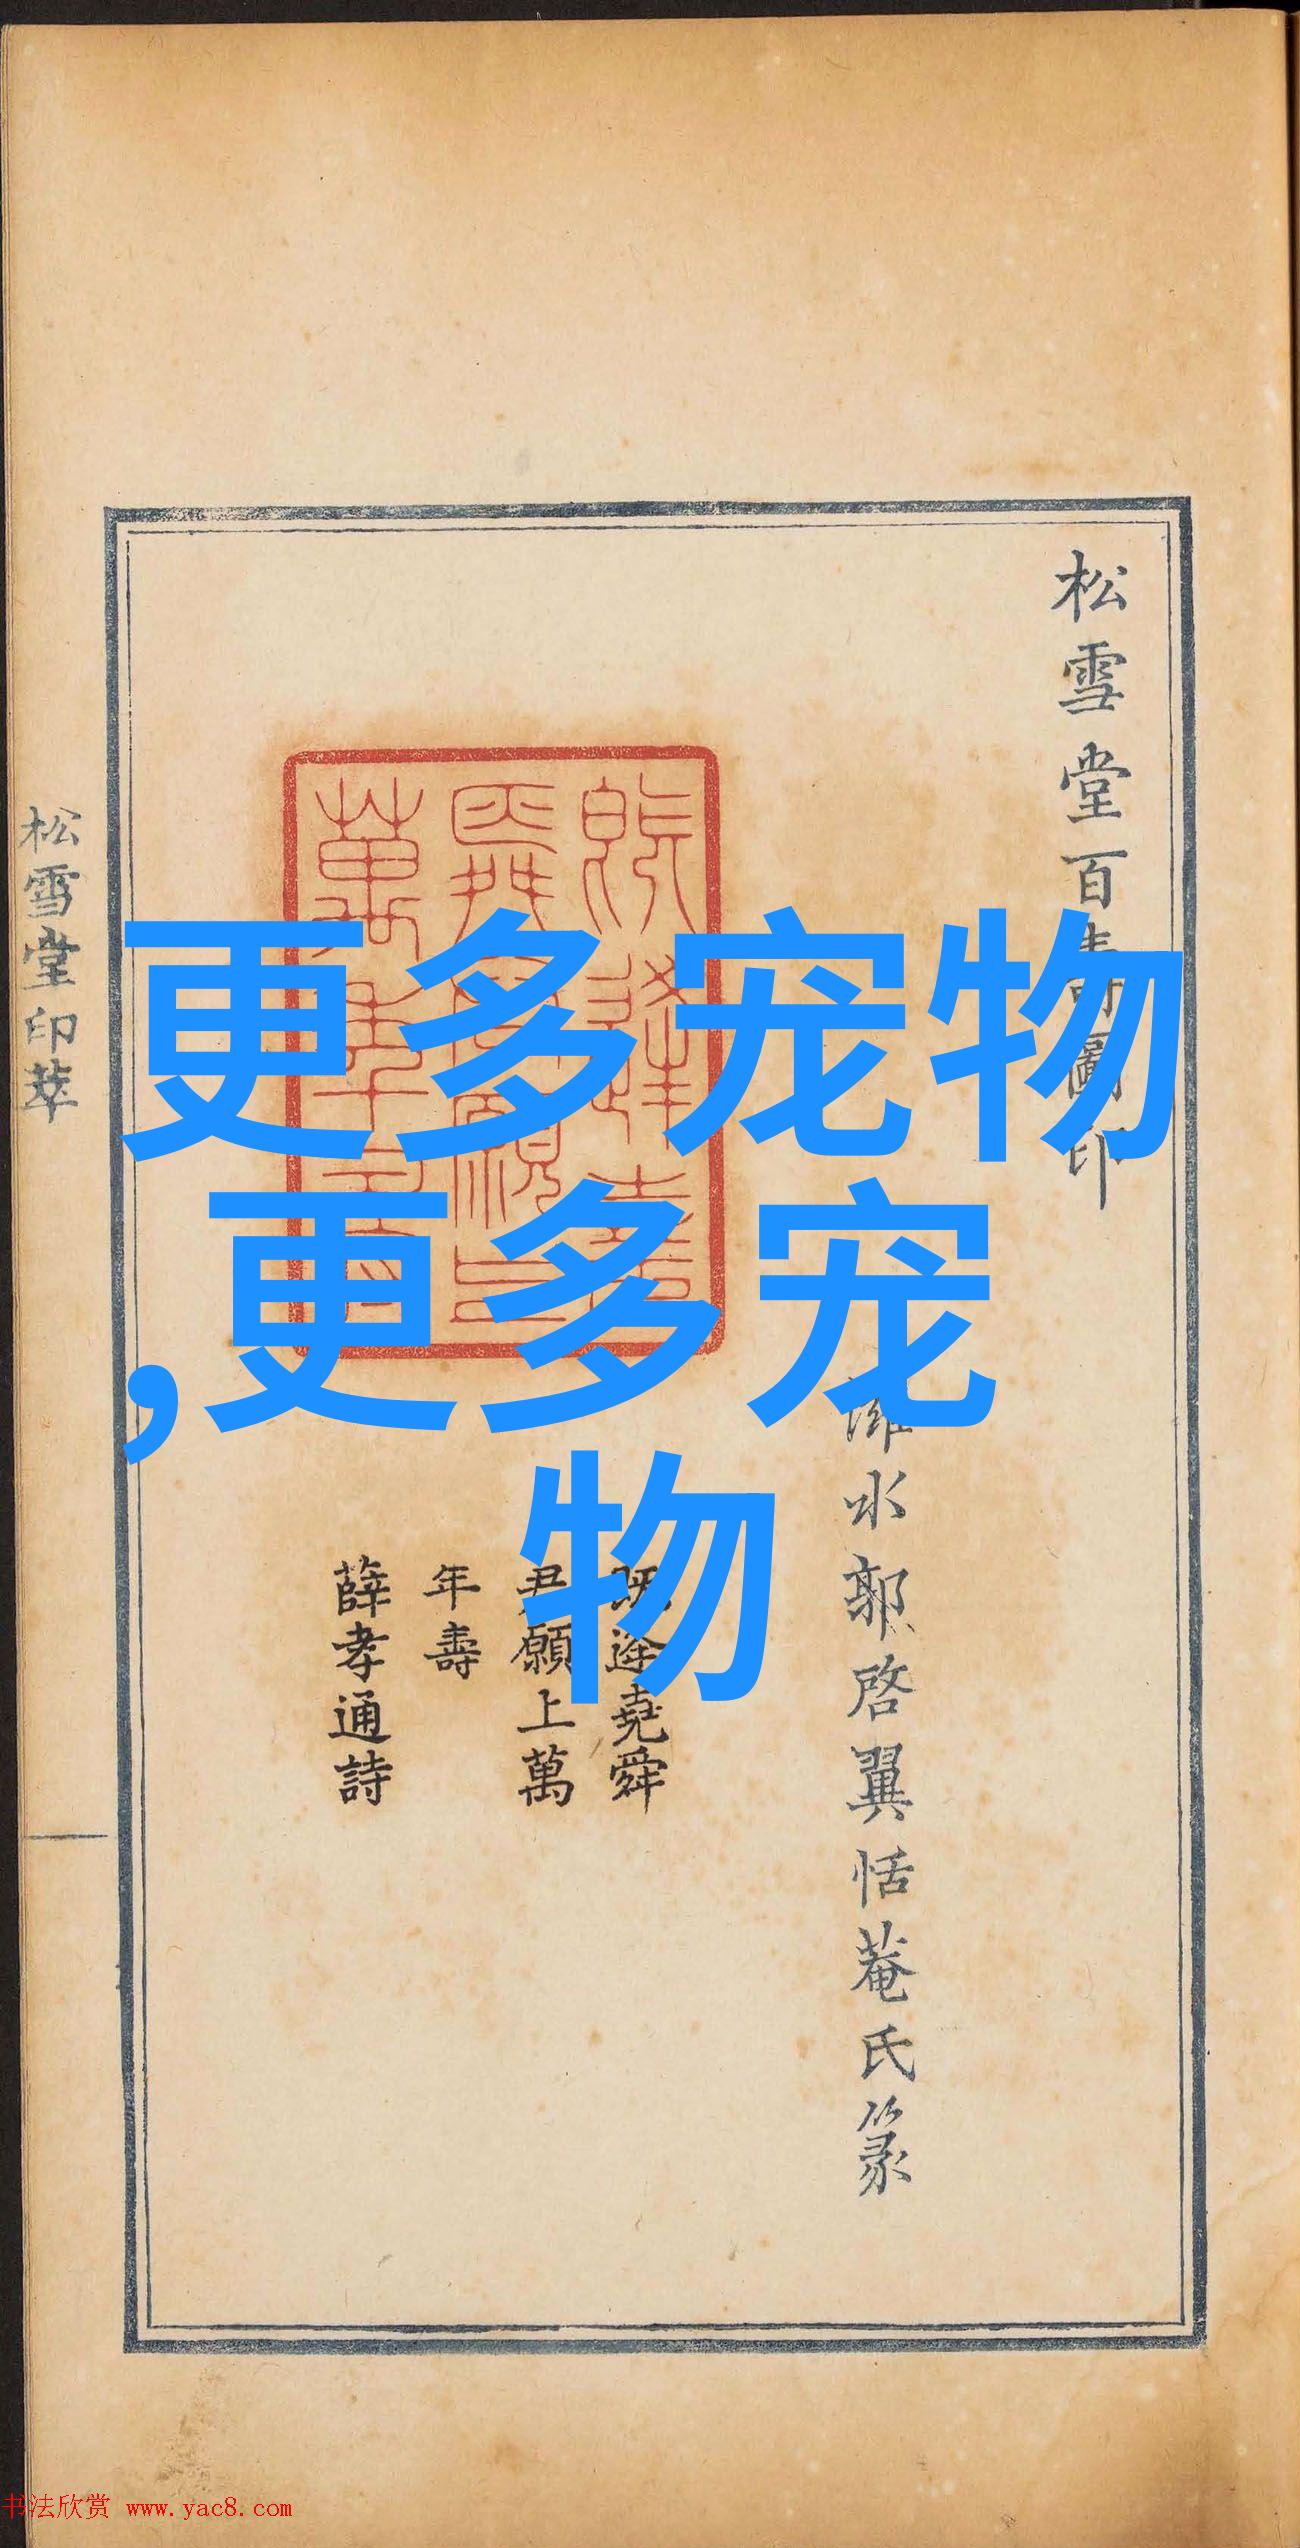 松雪堂百壽圖印
濰水郭啓翼恬菴氏篆
既逢堯舜
君願上萬
年壽
薛孝通詩
松雪堂印萃
更多宠物
,更多宠
物
书法欣赏 www.yac8.com